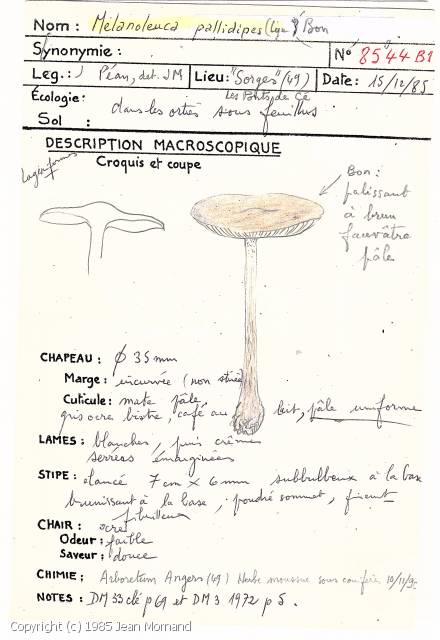 Nom : Mélanoleuca pallidipes Bon
Synonymie :
N° 85°44 B1
Leg. : J Péan, det. JM
Lieu : "Sorges" (49)
Les Ponts de Cé
Date : 15/12/85
Écologie : dans les orties sous feuillus
Sol :
DESCRIPTION MACROSCOPIQUE
Croquis et coupe
Bon :
palissant
à brun
fauvâtre
pâle
CHAPEAU : ϕ 35 mm
Marge : incurvée (non striée)
Cuticule : mate pâle,
gris ocre bistre, café au lait, pâle uniforme
LAMES : blanches, puis crème
serrées émarginées
STIPE : élancé 7 cm x 6 mm subbulbeux à la base
brunissant à la base, poudré sommet,
fibrilleux
CHAIR : ocre
Odeur : faible
Saveur : douce
CHIMIE : Arboretum Angers (49) Herbe mousse sous conifère 10/11/
NOTES : DM 33 clé p 69 et DM 3 1972 p 5.
Copyright (c) 1985 Jean Mornand